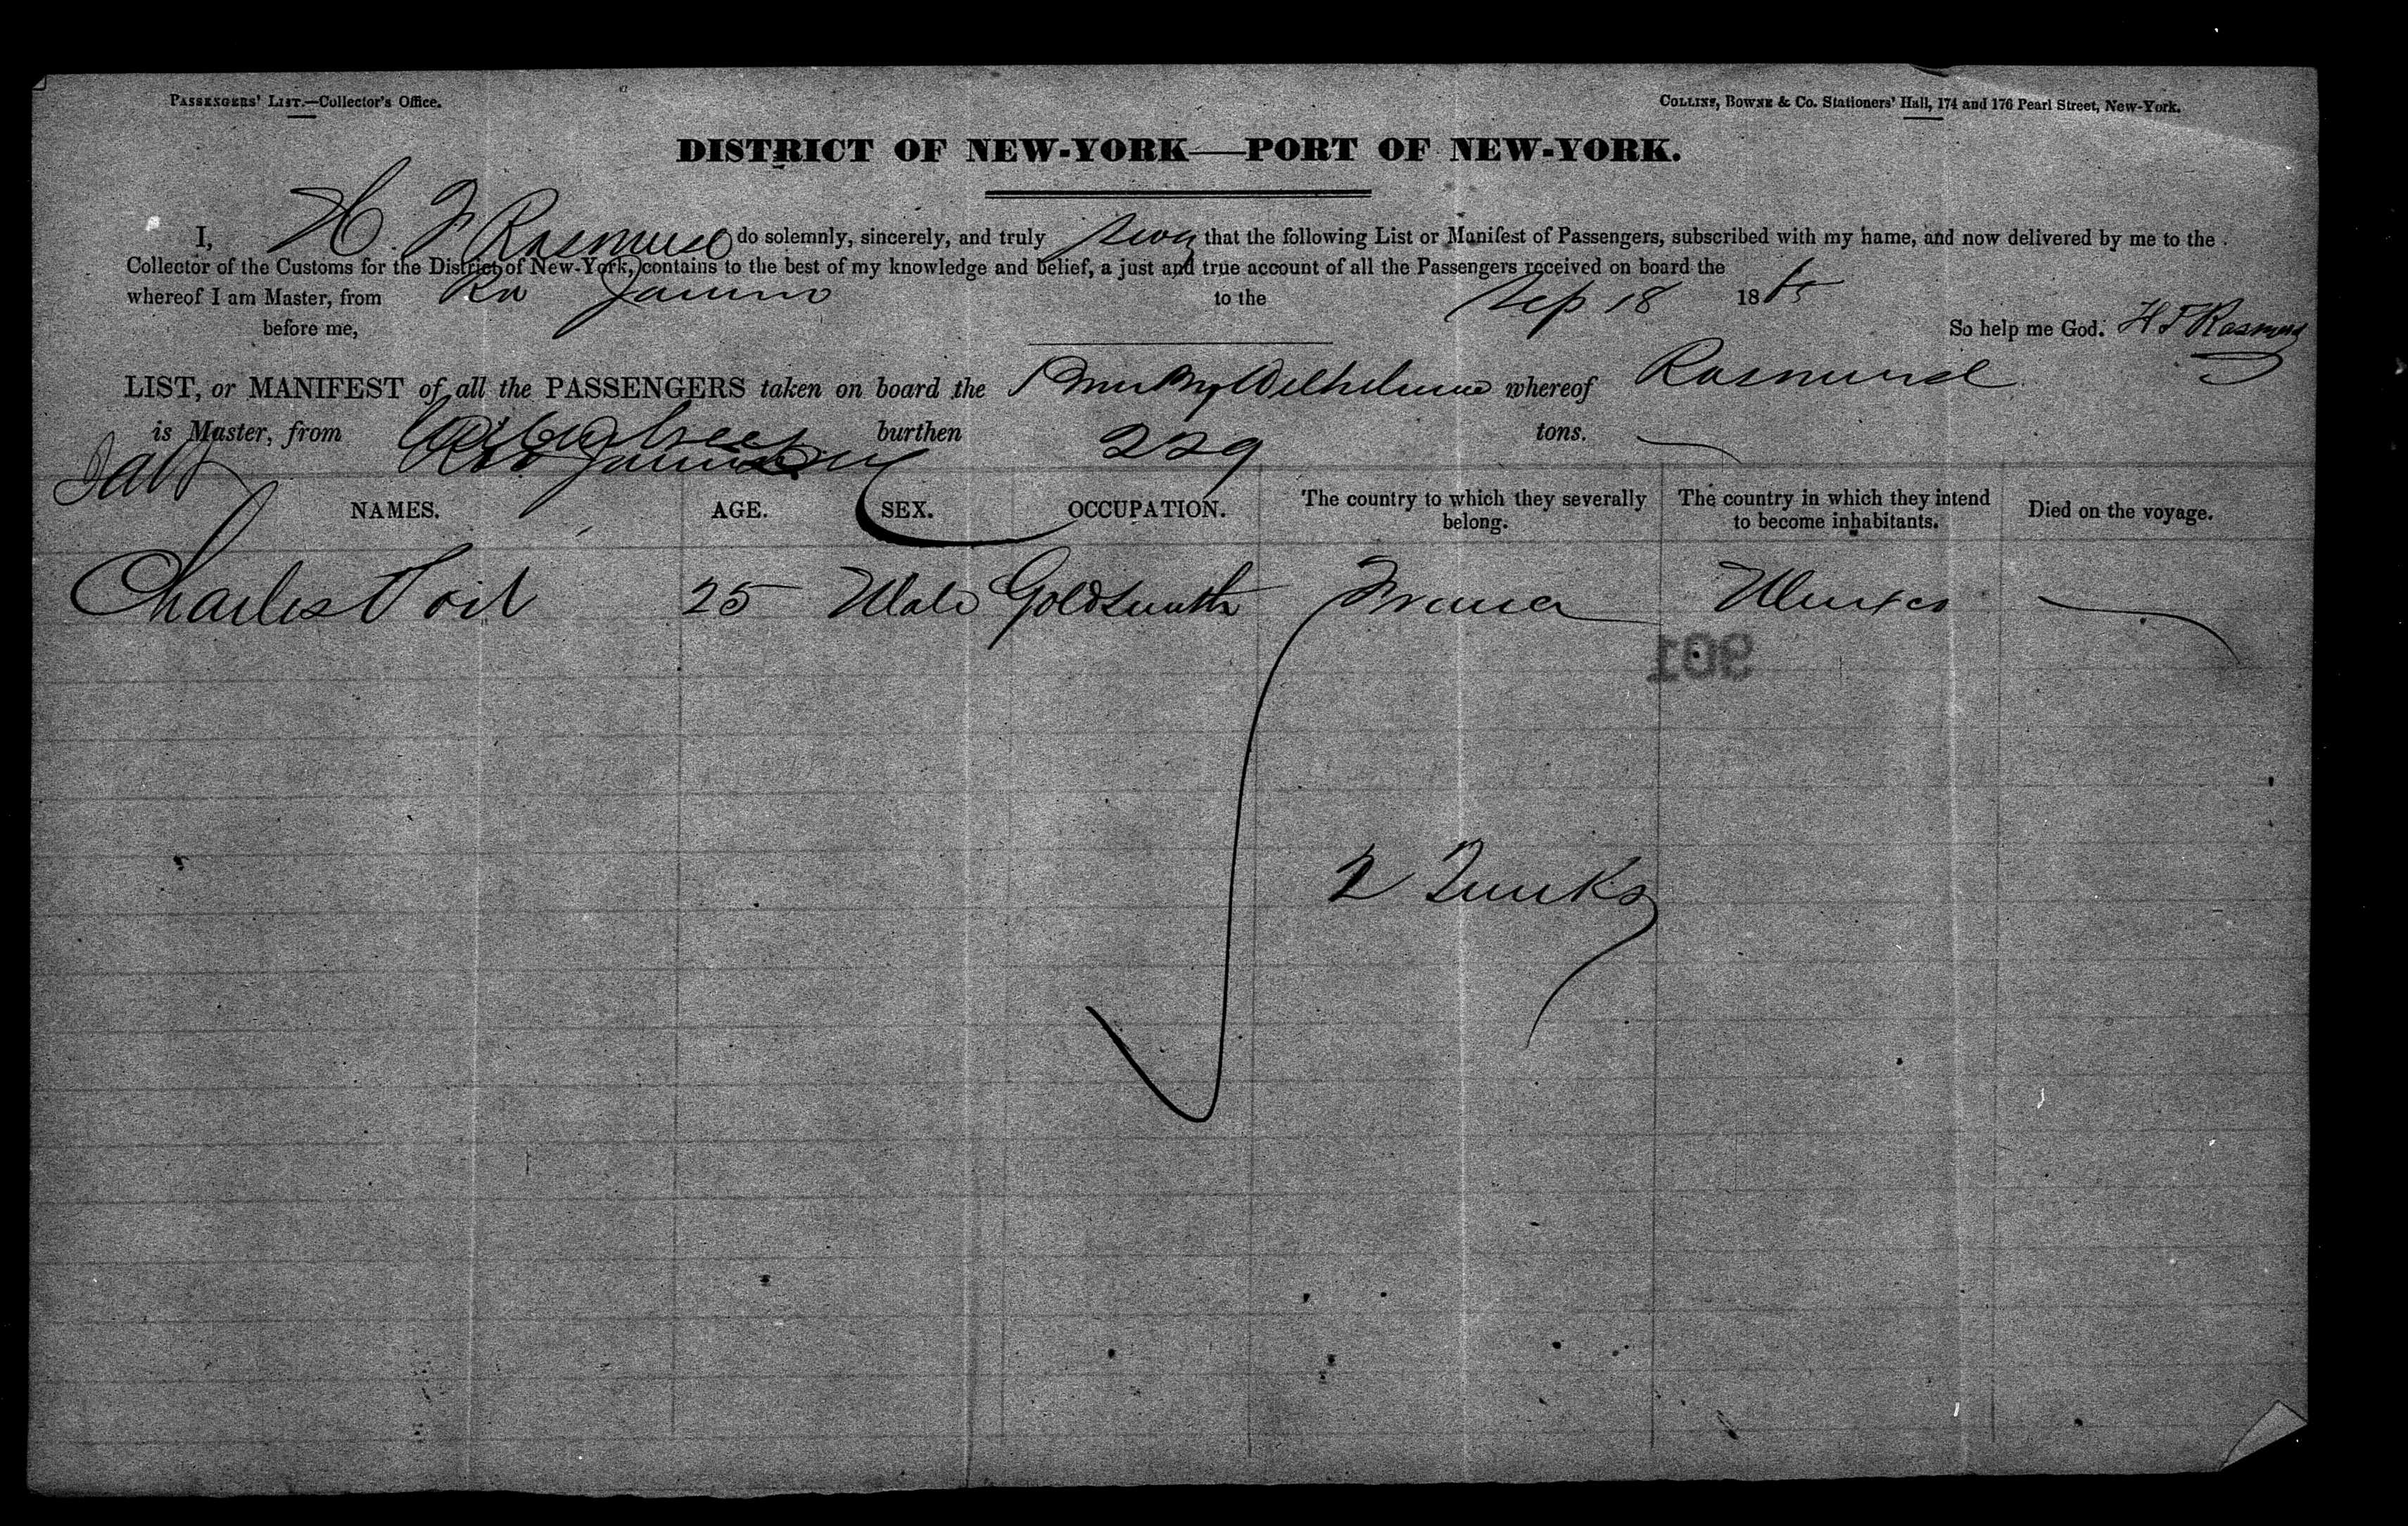 PASSENGERS' LIST.—Collector's Office.
COLLINS, BOWNE & Co. Stationers' Hall, 174 and 176 Pearl Street, New-York.
DISTRICT OF NEW-YORK—PORT OF NEW-YORK.
I, H. F Rasmusse do solemnly, sincerely, and truly that the following List or Manifest of Passengers, subscribed with my name, and now delivered by me to the
Collector of the Customs for the District of New-York, contains to the best of my knowledge and belief, a just and true account of all the Passengers received on board the
whereof I am Master, from Rio Janiro to the Sep 18 18
before me,
So help me God. H F Rasmus
LIST, or MANIFEST of all the PASSENGERS taken on board the Wilhelmine whereof Rasmusse
is Master, from Rio Janiro burthen 229 tons.
NAMES. AGE. SEX. OCCUPATION. The country to which they severally belong. The country in which they intend to become inhabitants. Died on the voyage.
Charles 25 Male Goldsmith France Mexico
901
2 Trunks